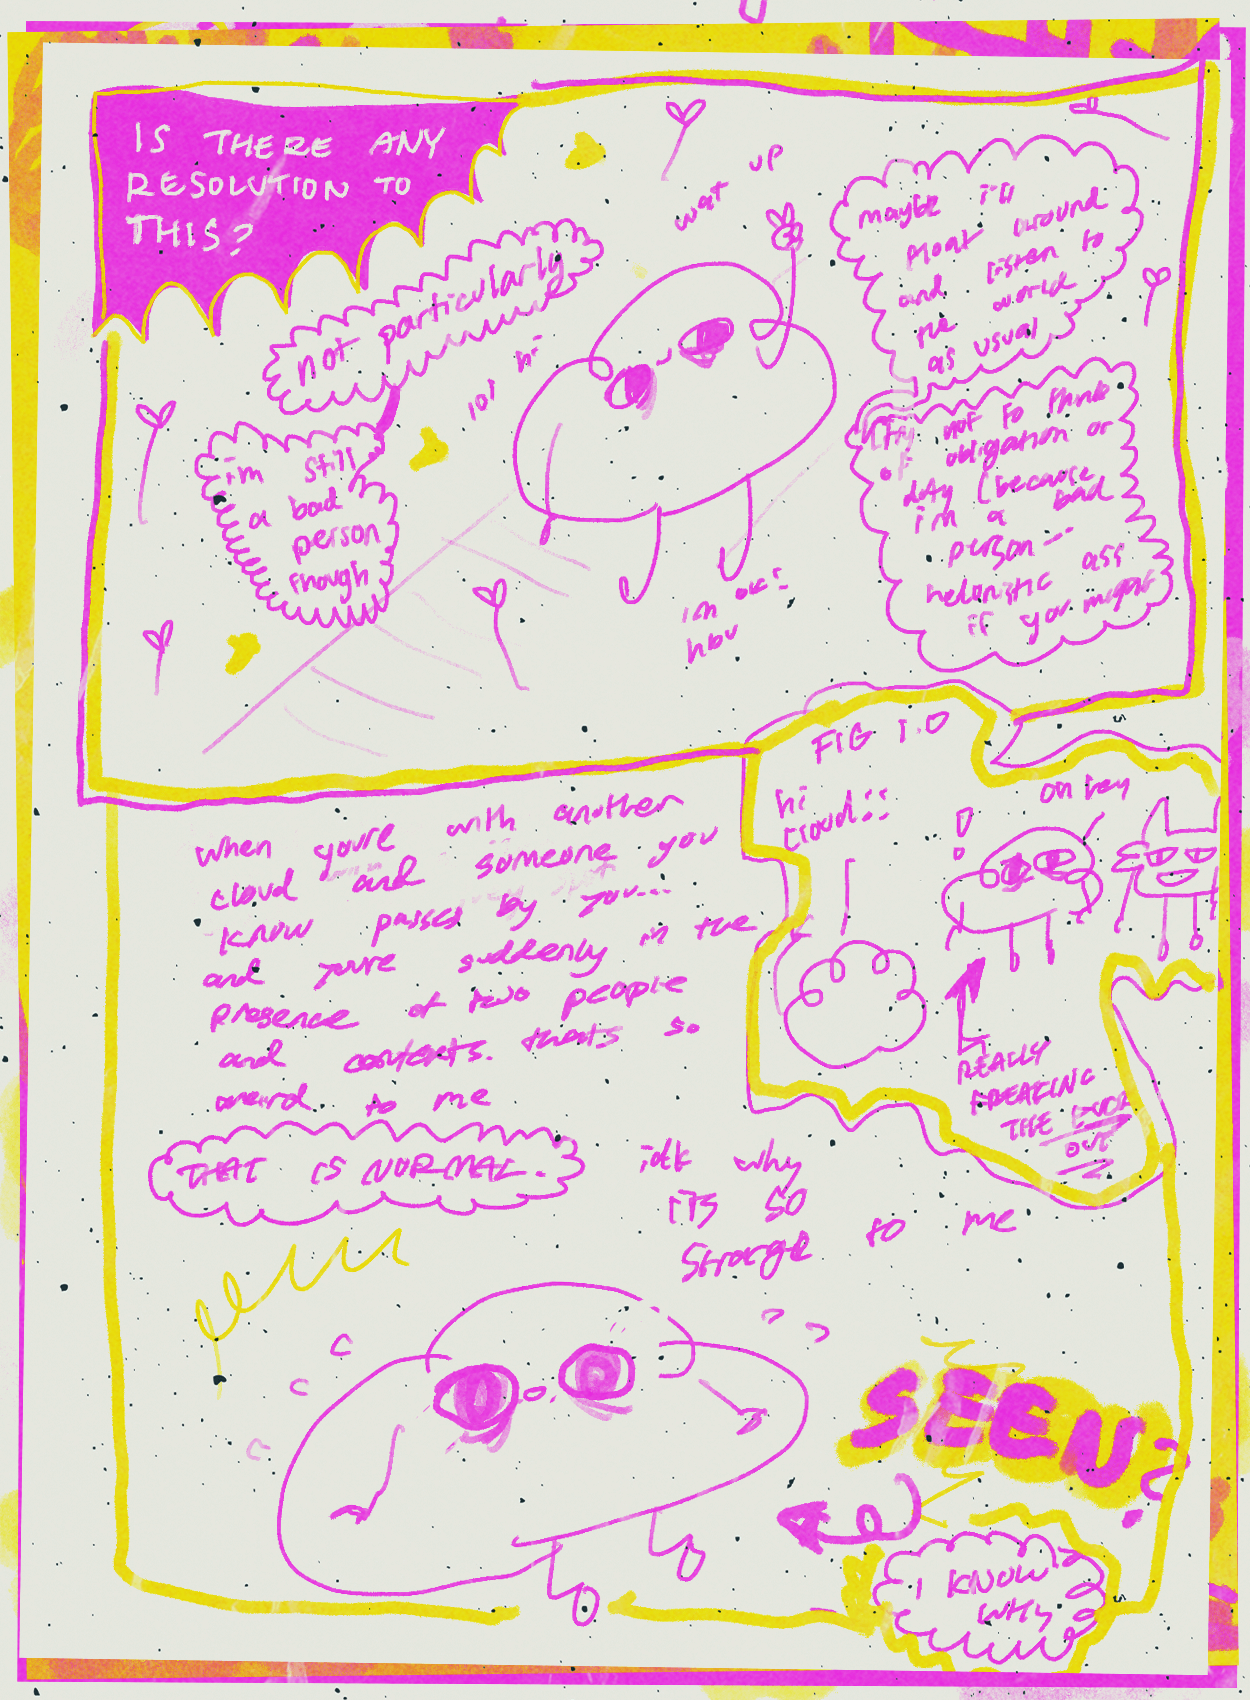 IS THERE ANY
RESOLUTION TO
THIS?
not particularly
i'm still
a bad
person
though
lol hi
wat up
maybe i'll
float around
and listen to
the world
as usual
try not to think
of obligation or
duty (because
i'm a bad
person...
hedonistic ass
if you might
im ok!!
hbu
FIG 1.0
hi
cloud!!
oh hey
REALLY
FREAKING
THE
OUT
when you're with another
cloud and someone you
know passes by you...
and you're suddenly in the
presence of two people
and contexts. thats so
weird to me
THAT IS NORMAL.
idk why
it's so
strange to me
SEEN?
I KNOW
WHY